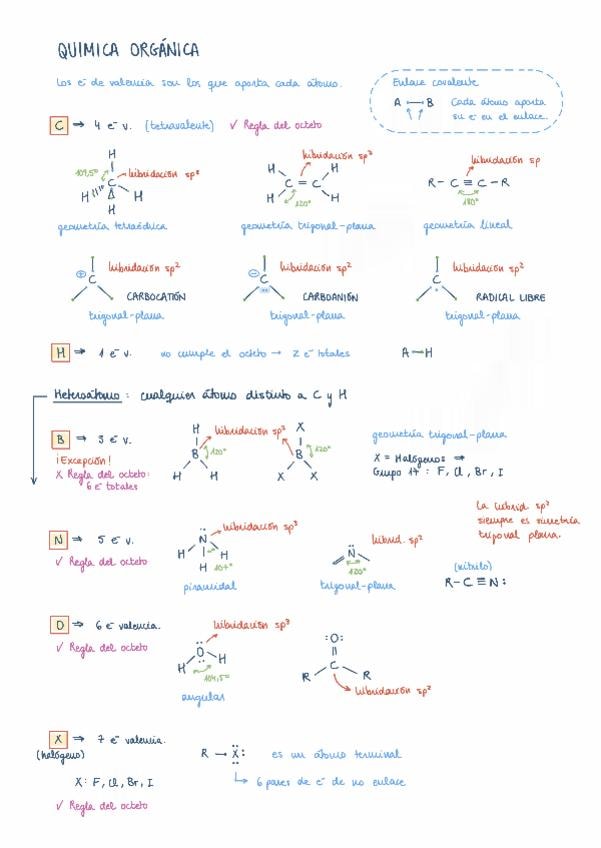 QUIMICA ORGÁNICA
Los e⁻ de valencia son los que aporta cada átomo.
Enlace covalente
A — B Cada átomo aporta
su e⁻ en el enlace.
C ⇒ 4 e⁻ v. (tetravalente) ✓ Regla del octeto
H
109,5º hibridación sp³
C
H H
H
geometría tetraédrica
hibridación sp²
H H
C = C
H H
120º
geometría trigonal-plana
hibridación sp
R - C ≡ C - R
180º
geometría lineal
⊕ C hibridación sp²
CARBOCATIÓN
trigonal-plana
⊖ C hibridación sp²
CARBOANIÓN
trigonal-plana
C hibridación sp²
RADICAL LIBRE
trigonal-plana
H ⇒ 1 e⁻ v. no cumple el octeto → 2 e⁻ totales A—H
Heteroátomo: cualquier átomo distinto a C y H
B ⇒ 3 e⁻ v.
¡Excepción!
X Regla del octeto:
6 e⁻ totales
H hibridación sp²
B 120º
H H
X
B 120º
X X
geometría trigonal-plana
X = Halógenos ⇒
Grupo 17: F, Cl, Br, I
La hibrid. sp²
siempre es simetría
trigonal plana.
N ⇒ 5 e⁻ v.
✓ Regla del octeto
hibridación sp³
N
H H
H 107º
piramidal
hibrid. sp²
N
120º
trigonal-plana
(nitrilo)
R-C≡N:
O ⇒ 6 e⁻ valencia.
✓ Regla del octeto
hibridación sp³
O
H H
104,5º
angular
:O:
C
R R
hibridación sp²
X ⇒ 7 e⁻ valencia.
(halógeno)
X: F, Cl, Br, I
✓ Regla del octeto
R — X: es un átomo terminal
↳ 6 pares de e⁻ de no enlace